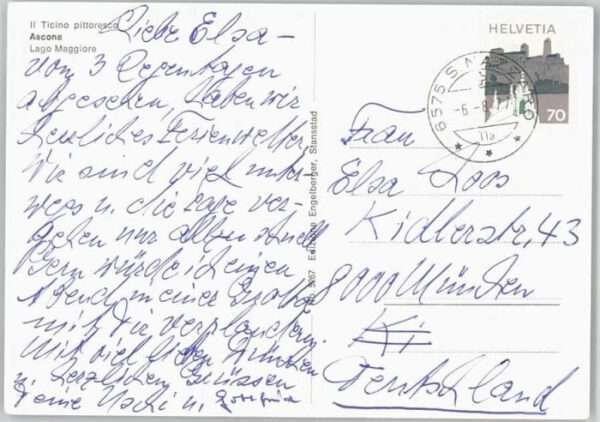 Il Ticino pittoresco
Ascona
Lago Maggiore
Liebe Elsa -
von 3 Regentagen
abgesehen, haben wir
herrliches Ferienwetter,
Wir sind viel unter-
wegs u. die Tage ver-
gehen nur allzu schnell
Gern würde ich einen
Abend in einer
mit Dir verplaudern.
Mit viel lieben Wünschen
u. herzlichen Grüssen
Deine u. Gottfried
Engelberger, Stansstad
HELVETIA
70
6575 S. NA
-6.-8
11a
Frau
Elsa Loos
Kidlerstr, 43
8000 München
Ki
Deutschland